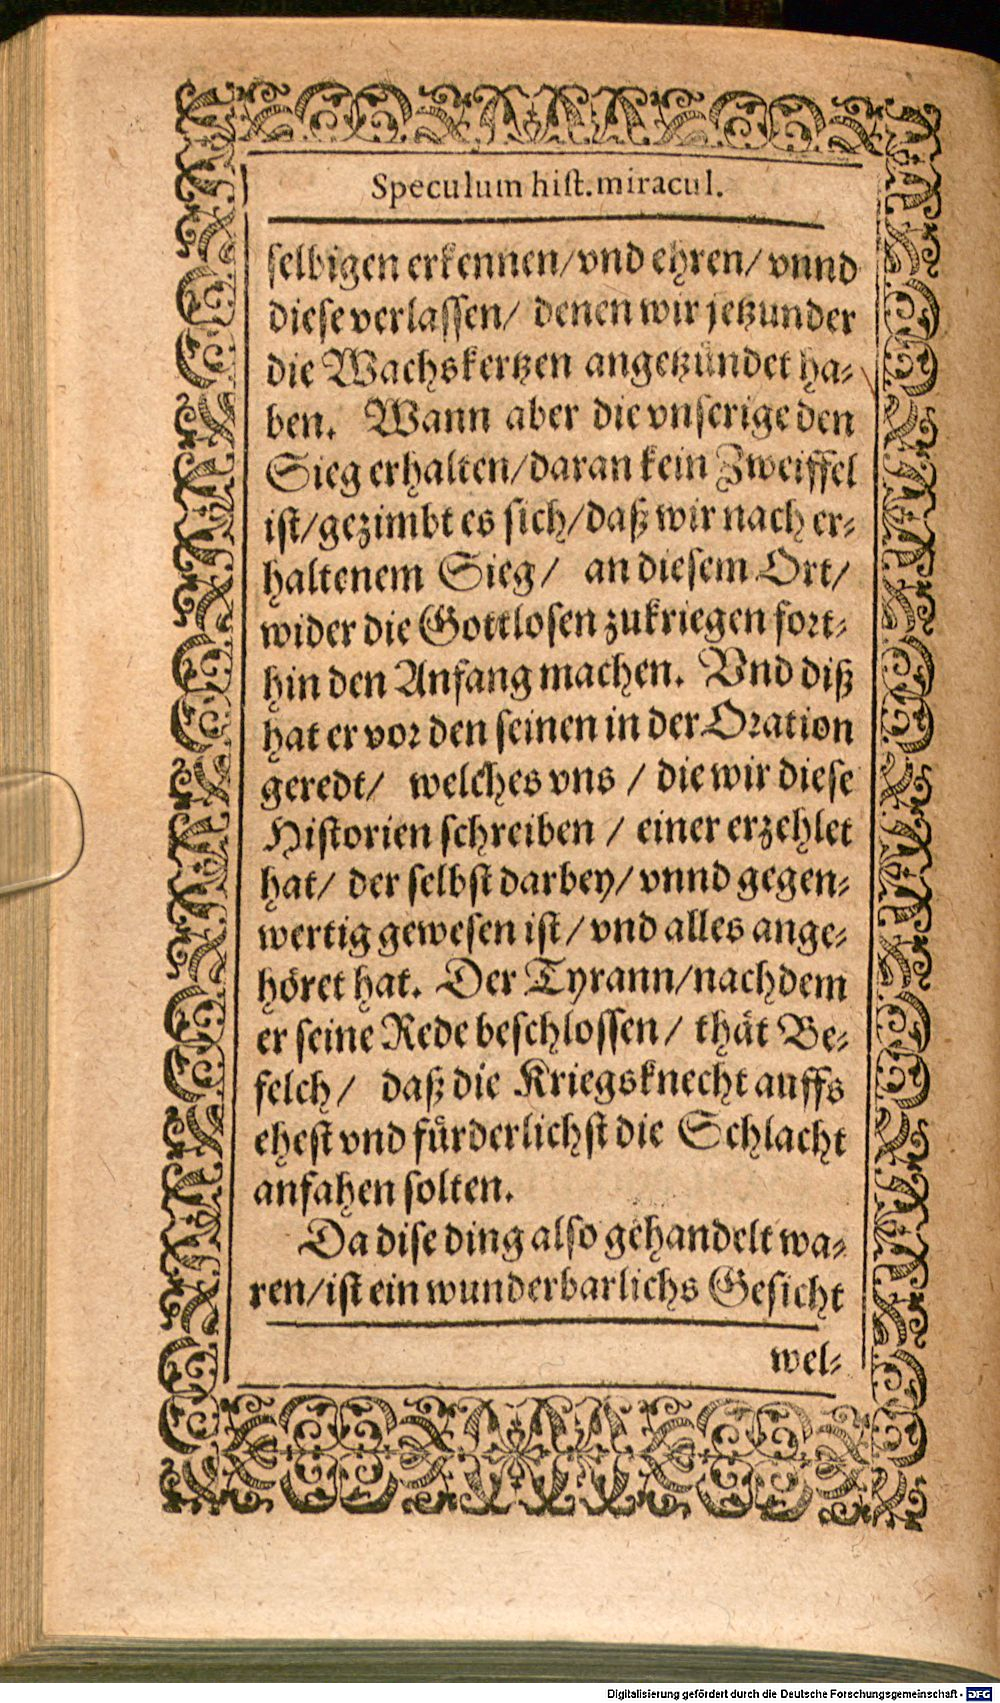 Speculum hist. miracul.
selbigen erkennen/ vnd ehren/ vnnd
diese verlassen/ denen wir jetzunder
die Wachskertzen angetzündet ha-
ben. Wann aber die vnserige den
Sieg erhalten/ daran kein Zweiffel
ist/ gezimbt es sich/ daß wir nach er-
haltenem Sieg/ an diesem Ort/
wider die Gottlosen zukriegen fort-
hin den Anfang machen. Vnd diß
hat er vor den seinen in der Oration
geredt/ welches vns / die wir diese
Historien schreiben / einer erzehlet
hat/ der selbst darbey/ vnnd gegen-
wertig gewesen ist/ vnd alles ange-
höret hat. Der Tyrann/ nachdem
er seine Rede beschlossen/ thät Be-
felch/ daß die Kriegsknecht auffs
ehest vnd fürderlichst die Schlacht
anfahen solten.
Da dise ding also gehandelt wa-
ren/ ist ein wunderbarlichs Gesicht
wel-
Digitalisierung gefördert durch die Deutsche Forschungsgemeinschaft - DFG